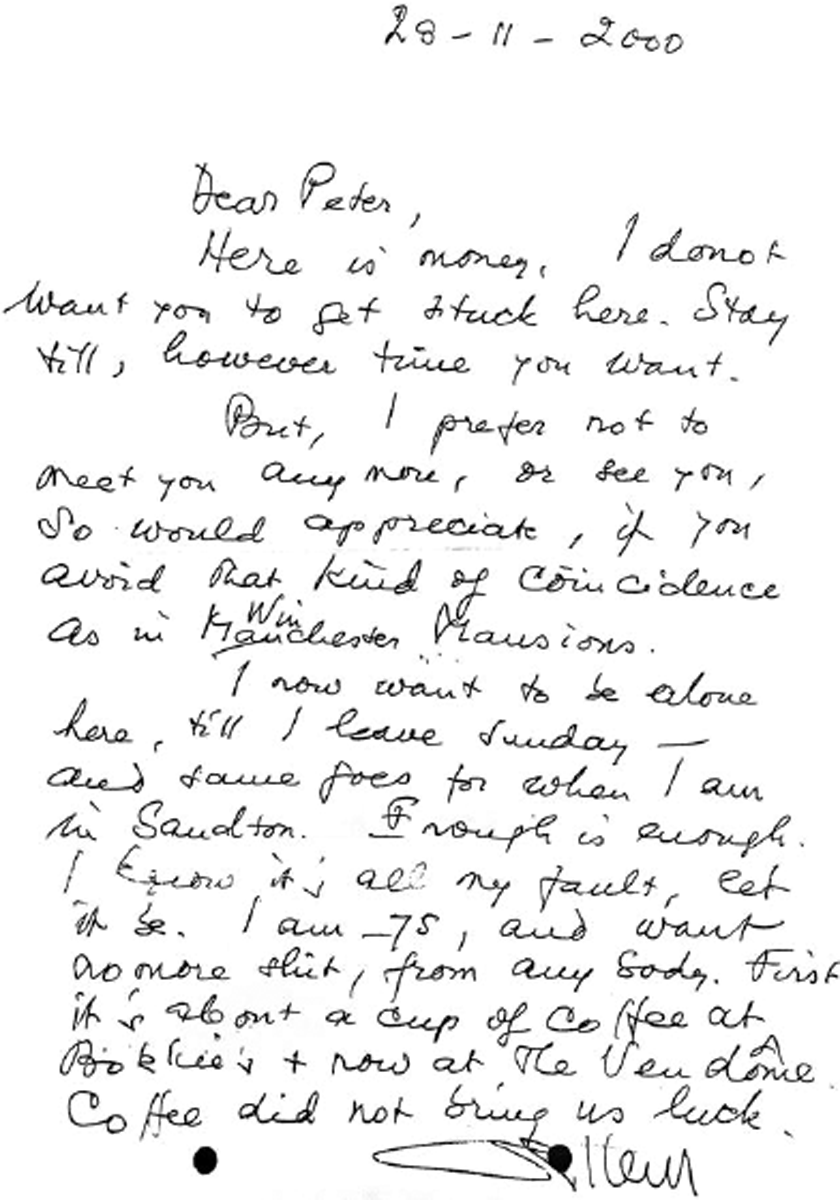 28 - 11 - 2000
Dear Peter,
Here is money. I donot
want you to get stuck here. Stay
till, however time you want.
But, I prefer not to
meet you any more, or see you,
so would appreciate, if you
avoid that kind of coincidence
Win
as in Manchester Mansions.
I now want to be alone
here, till I leave Sunday —
and same goes for when I am
in Sandton. Enough is enough.
I know it's all my fault, let
it be. I am -75, and want
no more shit, from any body. First
it's about a cup of Coffee at
+ now at The Vendôme.
Coffee did not bring us luck.